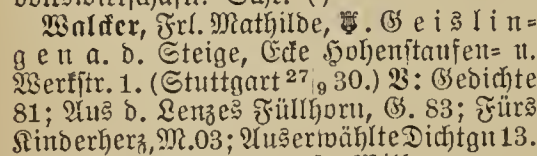 Walcker, Frl. Mathilde, Geislin=
gen a. d. Steige, Ecke Hohenstaufen= u.
Werkstr. 1. (Stuttgart 27/9 30.) V: Gedichte
81; Aus d. Lenzes Füllhorn, G. 83; Fürs
Kinderherz, M. 03; Auserwählte Dichtgn 13.